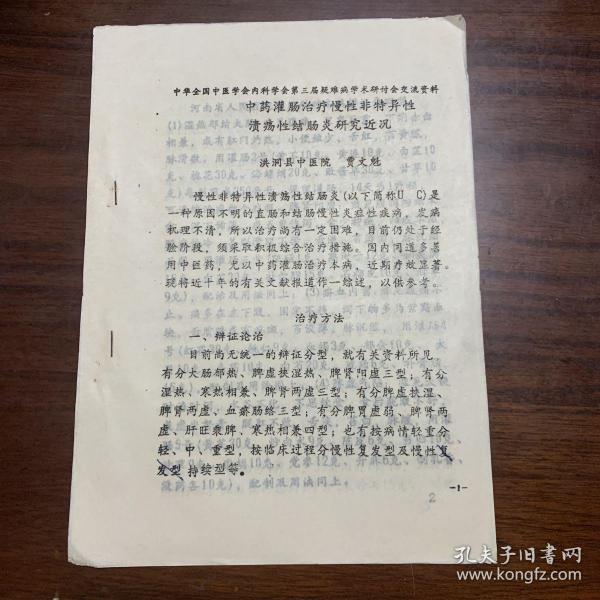 中华全国中医学会内科学会第三届疑难病学术研讨会交流资料
中药灌肠治疗慢性非特异性
溃疡性结肠炎研究近况
洪洞县中医院 贾文魁
慢性非特异性溃疡性结肠炎(以下简称U C)是
一种原因不明的直肠和结肠慢性炎症性疾病，发病
机理不清，所以治疗尚有一定困难，目前仍处于经
验阶段，须采取积极综合治疗措施。国内同道多善
用中医药，尤以中药灌肠治疗本病，近期疗效显著。
现将近十年的有关文献报道作一综述，以供参考。
治疗方法
一、辩证论治
目前尚无统一的辩证分型，就有关资料所见，
有分大肠郁热、脾虚挟湿热、脾肾阳虚三型；有分
湿热、寒热相兼、脾肾两虚三型；有分脾虚挟湿、
脾肾两虚、血瘀肠络三型；有分脾胃虚弱、脾肾两
虚、肝旺乘脾、寒热相兼四型；也有按病情轻重分
轻、中、重型，按临床过程分慢性复发型及慢性复
发型 持续型等。
-1-
2
孔夫子旧书网
www.kongfz.com